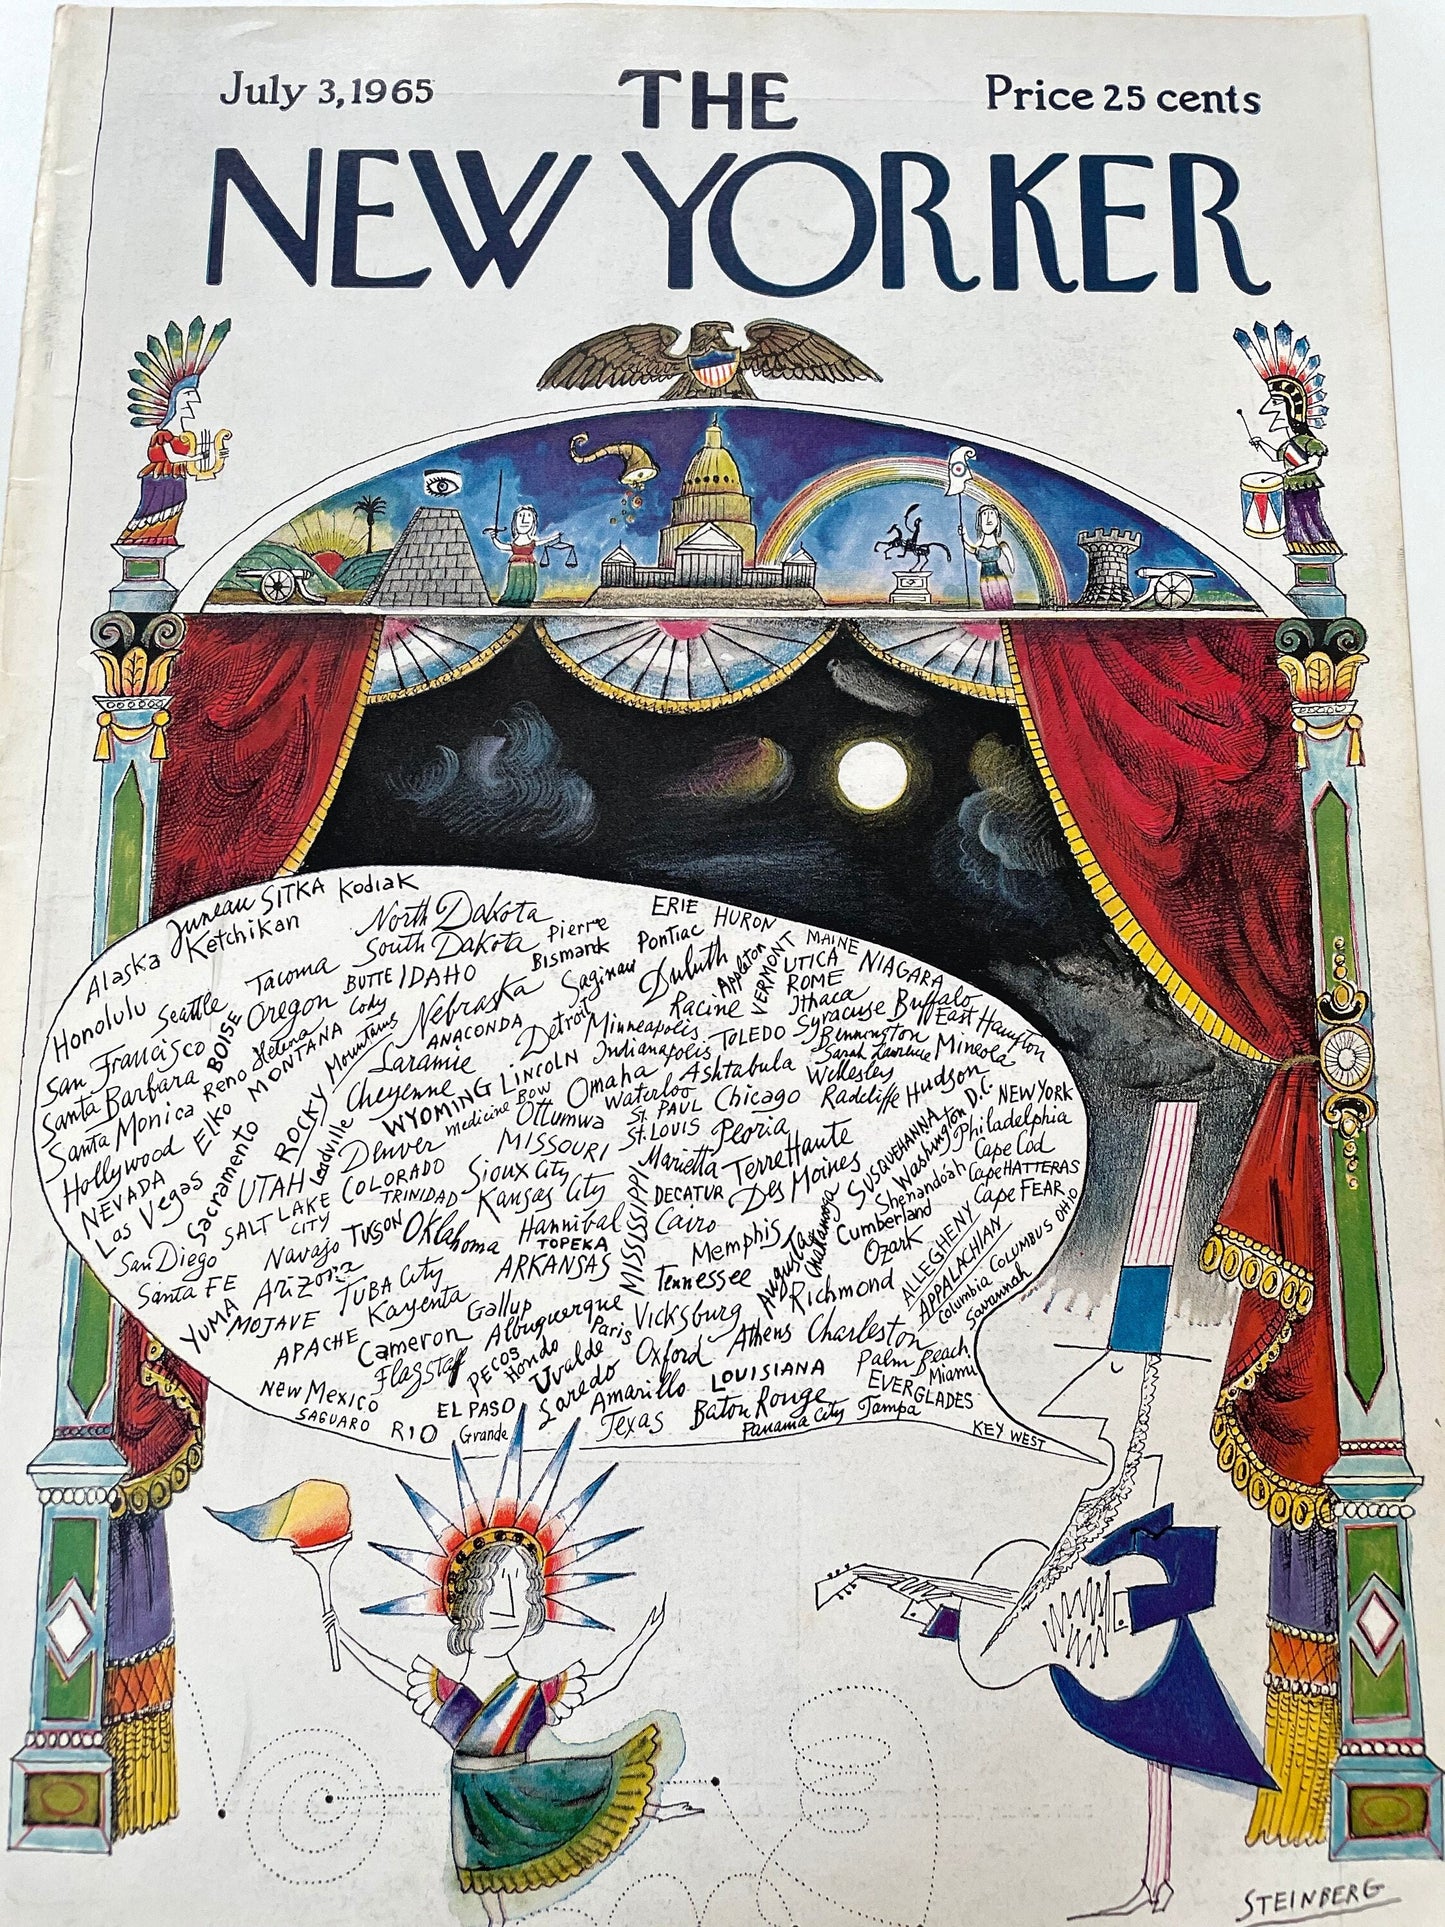 July 3, 1965
THE
Price 25 cents
NEW YORKER
Juneau SITKA Kodiak
Alaska Ketchikan
Honolulu
Seattle
Tacoma
North Dakota
South Dakota
Pierre
Bismark
ERIE HURON
Pontiac
Saginaw
Duluth
Appleton
VERMONT
MAINE
UTICA
NIAGARA
ROME
Ithaca
Buffalo
Syracuse
East Hampton
San Francisco
BOISE
Oregon
BUTTE IDAHO
Cody
Nebraska
ANACONDA
Detroit
Minneapolis
Racine
TOLEDO
Bennington
Sarah Lawrence
Mineola
Santa Barbara
Reno
Helena
MONTANA
ROCKY Mountains
Laramie
Cheyenne
WYOMING
LINCOLN
Indianapolis
Ashtabula
Wellesley
Santa Monica
Elko
Medicine Bow
Omaha
Waterloo
Ottumwa
ST. PAUL
Chicago
Radcliffe
Hudson
Hollywood
Sacramento
Leadville
Denver
MISSOURI
ST. LOUIS
Peoria
Washington D.C.
NEW YORK
Philadelphia
NEVADA
Las Vegas
UTAH
COLORADO
TRINIDAD
Sioux City
Kansas City
Marietta
Terre Haute
Des Moines
SUSQUEHANNA
Shenandoah
Cape Cod
Cape HATTERAS
Cape FEAR
San Diego
SALT LAKE
CITY
TUSON
Oklahoma
Hannibal
TOPEKA
MISSISSIPPI
DECATUR
Cairo
Memphis
Cumberland
Ozark
Santa FE
Navajo
Arizona
TUBA City
ARKANSAS
Tennessee
Augusta
Richmond
ALLEGHENY
APPALACHIAN
Columbia COLUMBUS OHIO
Savannah
YUMA
MOJAVE
Kayenta
Gallup
Albuquerque
Vicksburg
Athens
Charleston
APACHE
Cameron
Flagstaff
PECOS
Hondo
Uvalde
Paris
Oxford
LOUISIANA
Palm Beach
Miami
New Mexico
SAGUARO
RIO
Grande
EL PASO
Laredo
Amarillo
Texas
Baton Rouge
Panama City
Tampa
EVERGLADES
KEY WEST
STEINBERG